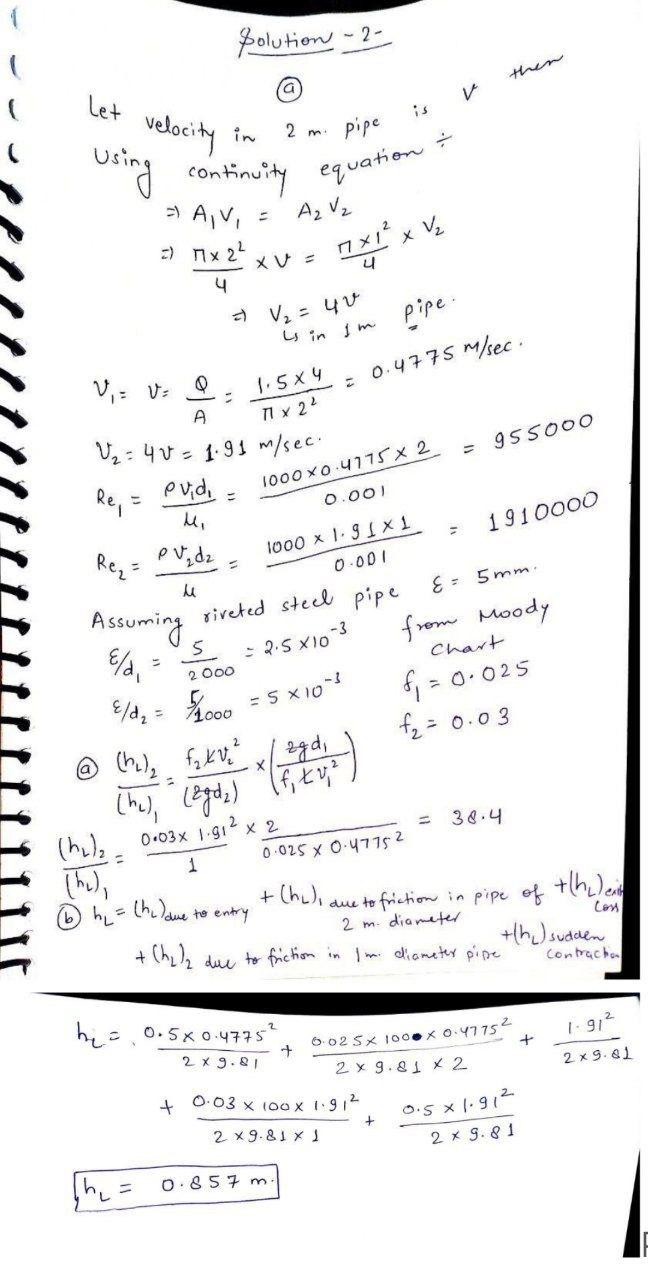 Solution -2-
(a)
Let velocity in 2 m. pipe is v then
Using continuity equation ÷
⇒ A₁V₁ = A₂V₂
⇒ π×2²/4 × v = π×1²/4 × V₂
⇒ V₂ = 4v
↳ in 1m pipe.
V₁ = v = Q/A = 1.5×4/π×2² = 0.4775 M/sec.
V₂ = 4v = 1.91 m/sec.
Re₁ = ρv₁d₁/μ₁ = 1000×0.4775×2/0.001 = 955000
Re₂ = ρv₂d₂/μ = 1000×1.91×1/0.001 = 1910000
Assuming riveted steel pipe ε = 5mm.
ε/d₁ = 5/2000 = 2.5×10⁻³ from Moody Chart
f₁ = 0.025
ε/d₂ = 5/1000 = 5×10⁻³
f₂ = 0.03
(a) (h_L)₂/(h_L)₁ = f₂LV₂²/(2gd₂) × (2gd₁/f₁LV₁²)
(h_L)₂/(h_L)₁ = 0.03×1.91²×2/1 0.025×0.4775² = 38.4
(b) h_L = (h_L) due to entry + (h_L)₁ due to friction in pipe of 2 m. diameter + (h_L) exit loss
+ (h_L)₂ due to friction in 1m. diameter pipe + (h_L) sudden contraction
h_L = 0.5×0.4775²/2×9.81 + 0.025×100×0.4775²/2×9.81×2 + 1.91²/2×9.81
+ 0.03×100×1.91²/2×9.81×1 + 0.5×1.91²/2×9.81
h_L = 0.857 m.